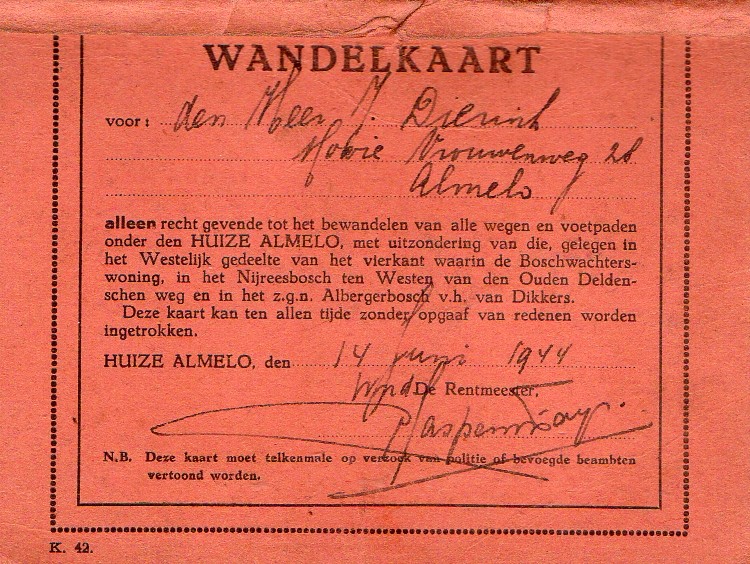 WANDELKAART
voor: den Heer J. Dierink
Mooie Vrouwenweg 28
Almelo
alleen recht gevende tot het bewandelen van alle wegen en voetpaden
onder den HUIZE ALMELO, met uitzondering van die, gelegen in
het Westelijk gedeelte van het vierkant waarin de Boschwachters-
woning, in het Nijreesbosch ten Westen van den Ouden Delden-
schen weg en in het z.g.n. Albergerbosch v.h. van Dikkers.
Deze kaart kan ten allen tijde zonder opgaaf van redenen worden
ingetrokken.
HUIZE ALMELO, den 14 Juni 1944
De Rentmeester,
N.B. Deze kaart moet telkenmale op verzoek van politie of bevoegde beambten
vertoond worden.
K. 42.